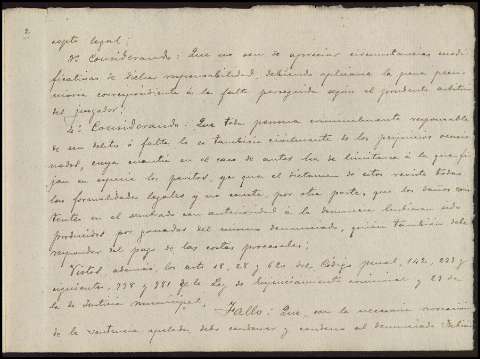 2
sujeto legal;
3º Considerando: Que no son de apreciar circunstancias modi-
ficativas de dicha responsabilidad, debiendo aplicarse la pena pecu-
niaria correspondiente á la falta perseguida según el prudente arbitrio
del juzgador;
4º Considerando: Que toda persona criminalmente responsable
de un delito ó falta lo es también civilmente de los perjuicios ocasio-
nados, cuya cuantía en el caso de autos ha de limitarse á la que fi-
jan en especie los peritos, ya que el dictamen de estos reviste todas
las formalidades legales y no consta, por otra parte, que los daños exis-
tentes en el sembrado con anterioridad á la denuncia hubieran sido
producidos por ganados del mismo denunciado, quien también debe
responder del pago de las costas procesales;
Vistos, además, los arts 18, 28 y 620 del Código penal, 142, 239 y
siguientes, 738 y 981 de la Ley de Enjuiciamiento criminal y 29 de
la de Justicia municipal, Fallo: Que, con la necesaria revocación
de la sentencia apelada debo condenar y condeno al denunciado